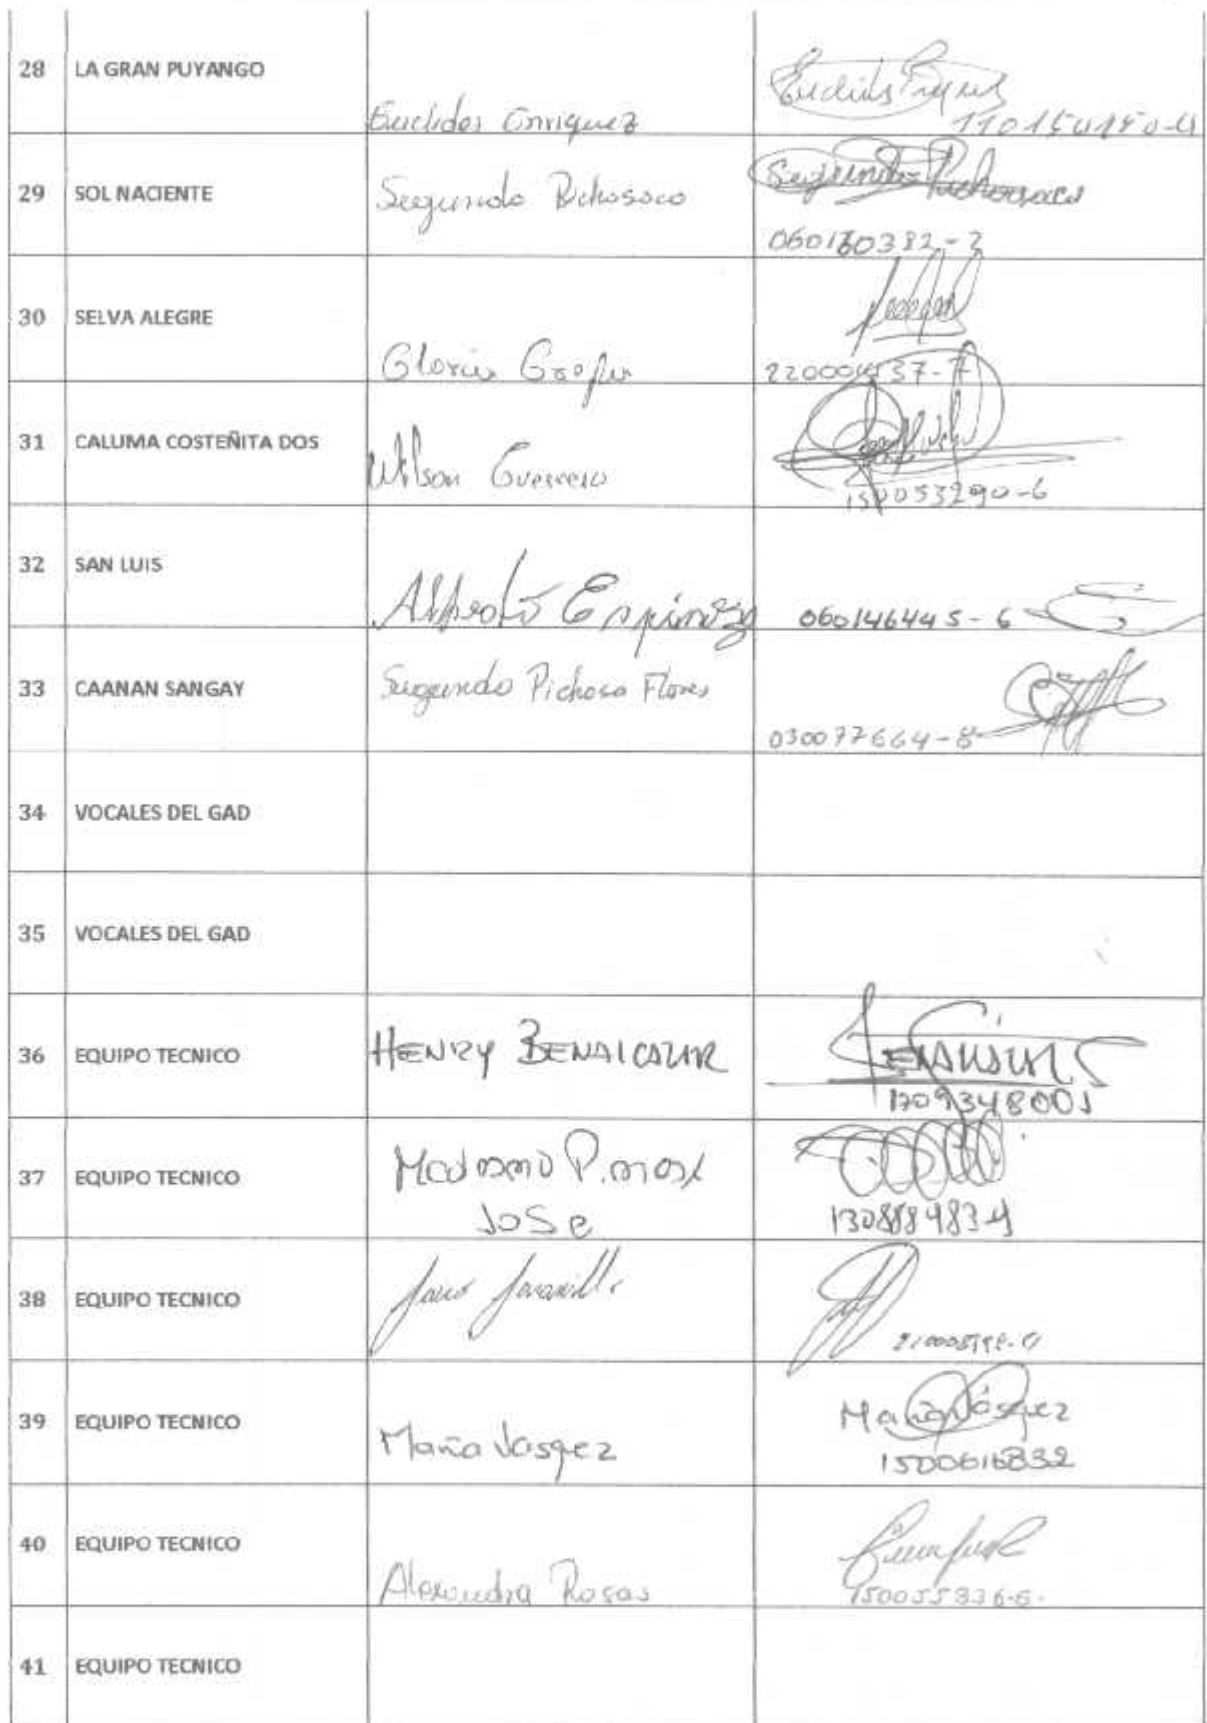 28 LA GRAN PUYANGO Euclides Enriquez
29 SOL NACIENTE Segundo Pichosaco
060160382-2
30 SELVA ALEGRE Gloria
31 CALUMA COSTEÑITA DOS Wilson Guerrero
150053290-6
32 SAN LUIS Alfredo Espinoza 060146445-6
33 CAANAN SANGAY Segundo Pichosa Flores
030077664-8
34 VOCALES DEL GAD
35 VOCALES DEL GAD
36 EQUIPO TECNICO HENRY BENALCAZAR
1709348001
37 EQUIPO TECNICO
JOSE
38 EQUIPO TECNICO Jaramillo
39 EQUIPO TECNICO Maria Vasqez María Vásquez
1500616832
40 EQUIPO TECNICO Alexandra Rosas
150055336-6.
41 EQUIPO TECNICO